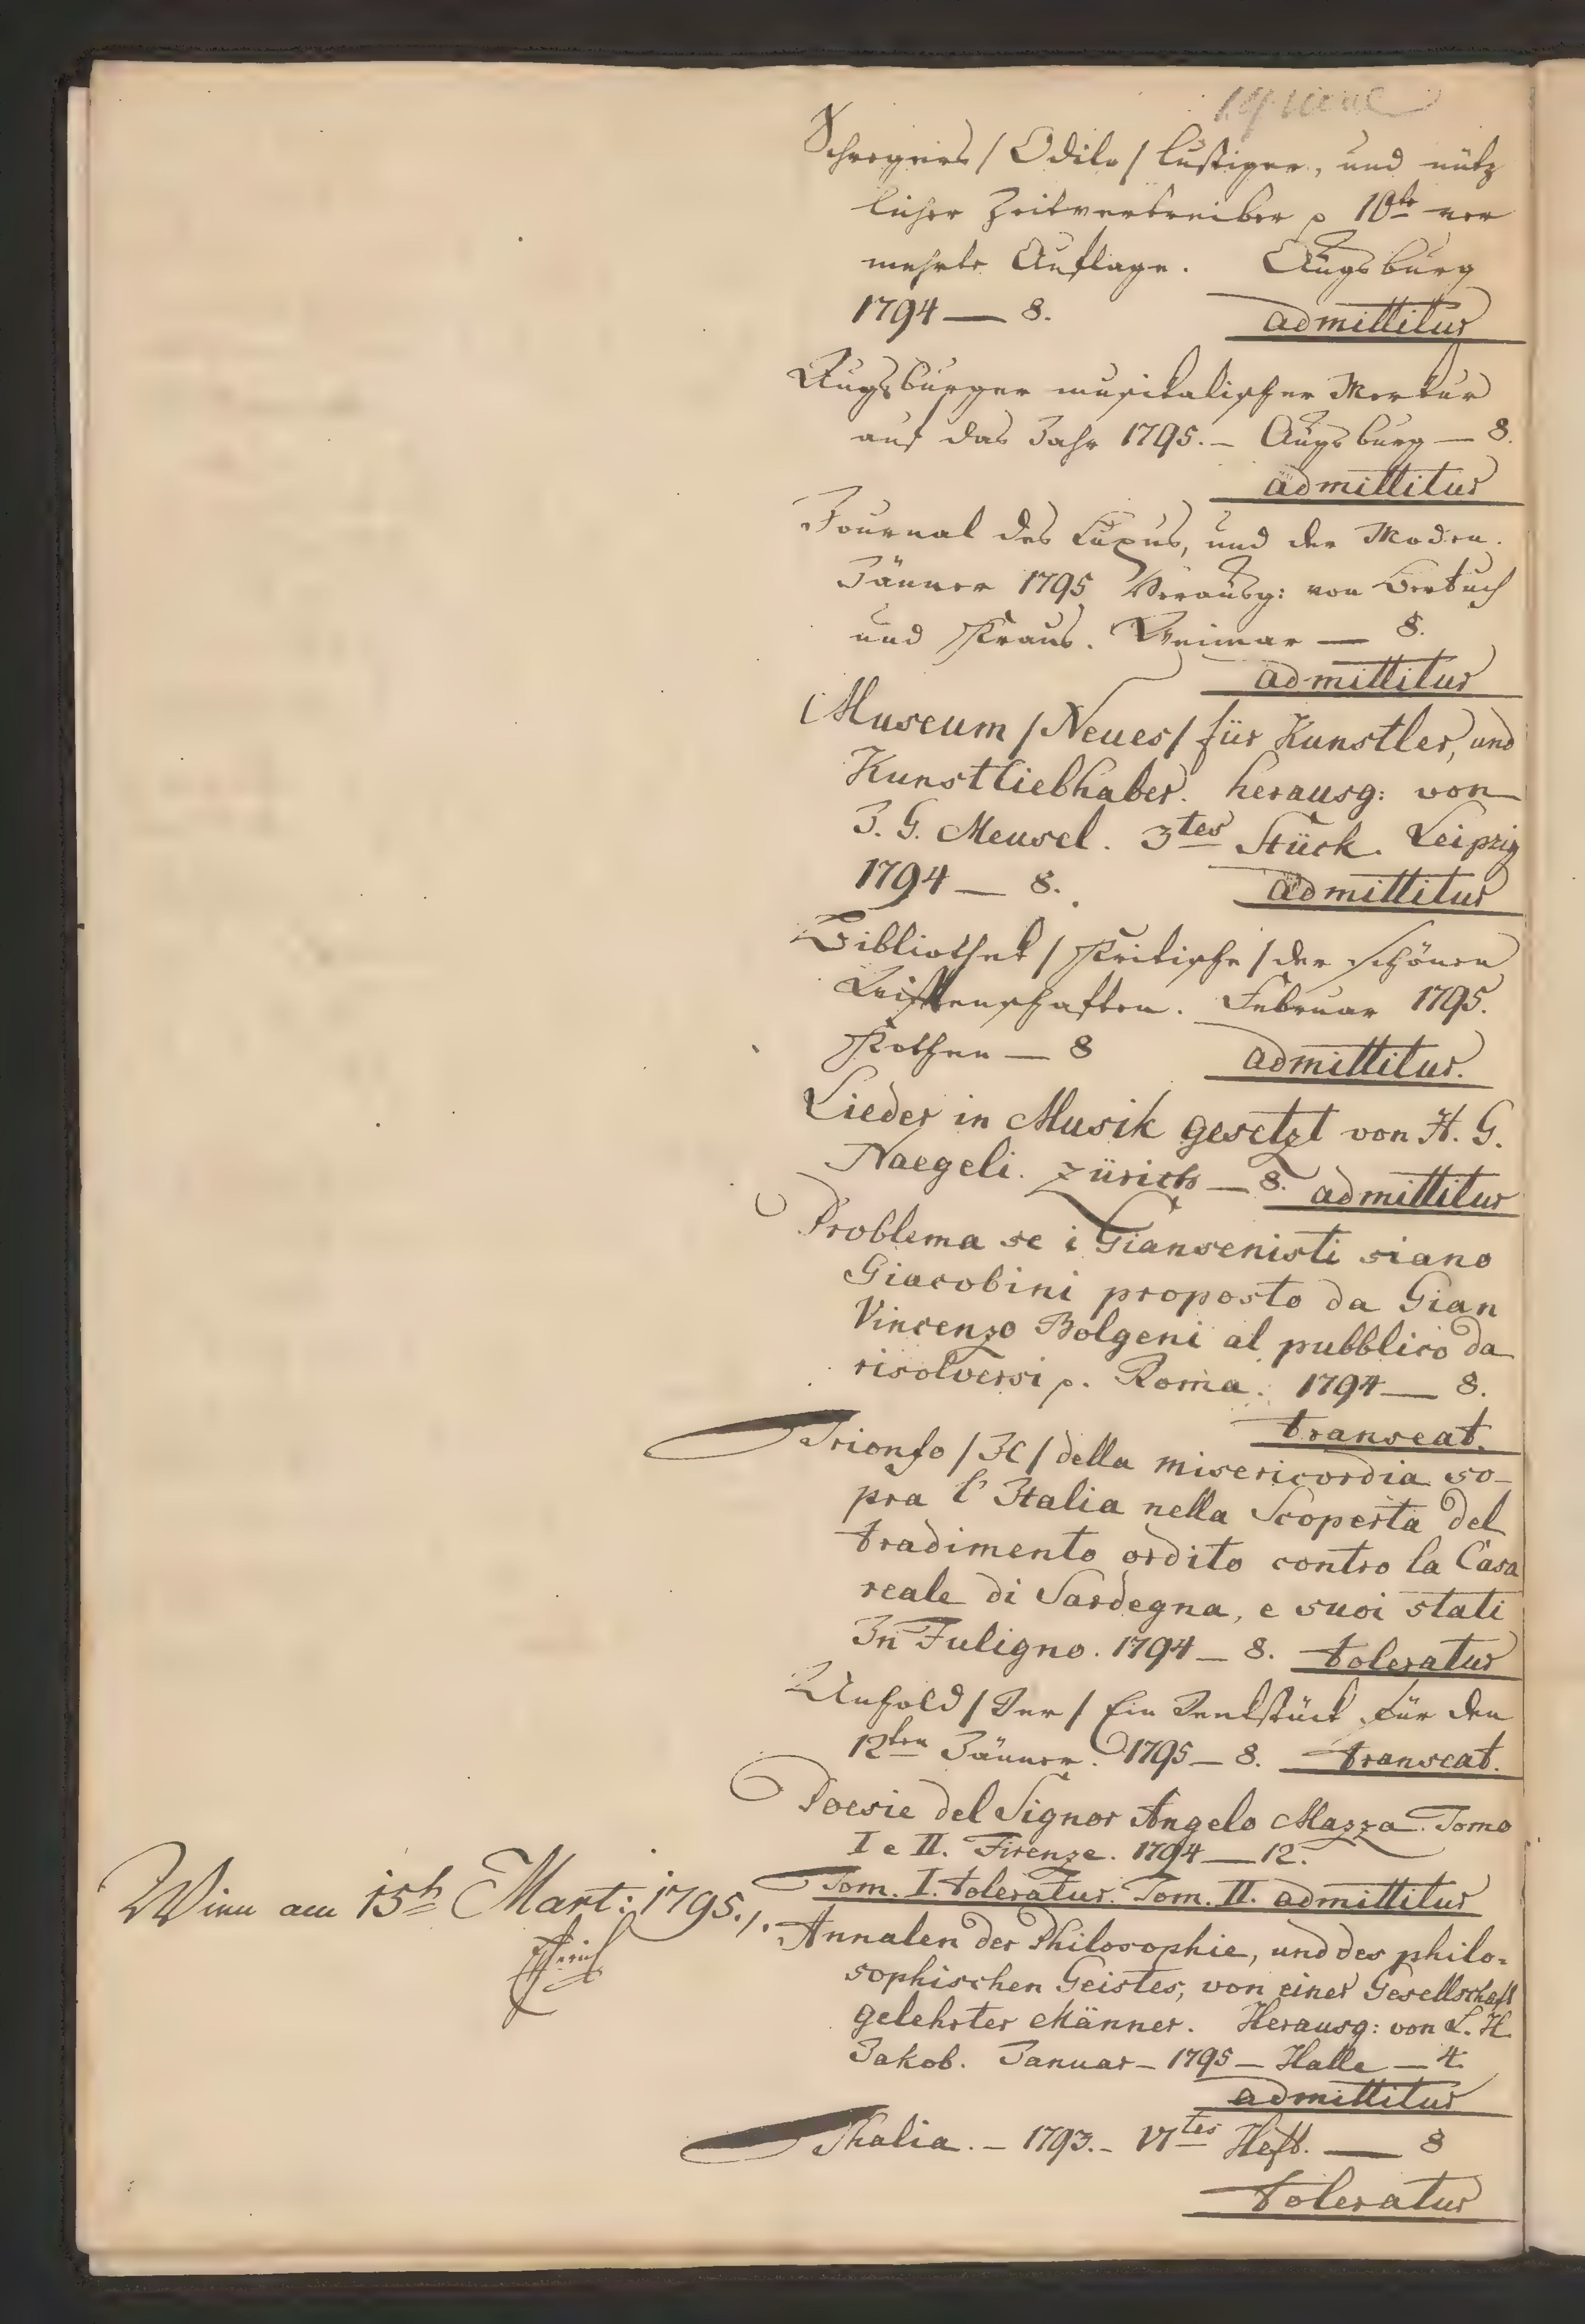 Schregers / Odilo / lustiger, und nütz
licher Zeitvertreiber p 10te ver
mehrte Auflage. Augsburg
1794 — 8. admittitur
Augsburger musikalischer Merkur
auf das Jahr 1795. — Augsburg — 8.
admittitur
Journal des Luxus, und der Moden.
Jänner 1795 Herausg: von Bertuch
und Kraus. Weimar — 8.
admittitur
Museum / Neues / für Kunstler, und
Kunstliebhaber. herausg: von
J. G. Meusel. 3tes Stück. Leipzig
1794 — 8. admittitur
Bibliothek / Kritische / der schönen
Wissenschaften. Februar 1795.
Kothen — 8 admittitur.
Lieder in Musik gesetzt von H. G.
Naegeli. Zürich — 8. admittitur
Problema se i Giansenisti siano
Giacobini proposto da Gian
Vincenzo Bolgeni al pubblico da
risolversi p. Roma. 1794 — 8.
transeat.
Trionfo / Il / della misericordia so-
pra l'Italia nella Scoperta del
tradimento ordito contro la Casa
reale di Sardegna, e suoi stati
In Fuligno. 1794 — 8. toleratur
Unhold / Der / Ein Denkstück für den
12ten Jänner. 1795 — 8. transeat.
Poesie del Signor Angelo Mazza. Tomo
I e II. Firenze. 1794 — 12.
Tom. I. toleratur. Tom. II. admittitur
Wien am 15t Mart: 1795./.
Annalen der Philosophie, und des philo-
sophischen Geistes, von einer Gesellschaft
gelehrter Männer. Herausg: von L. H.
Jakob. Januar — 1795 — Halle — 4.
admittitur
Thalia. — 1793. — VItes Heft. — 8
toleratur